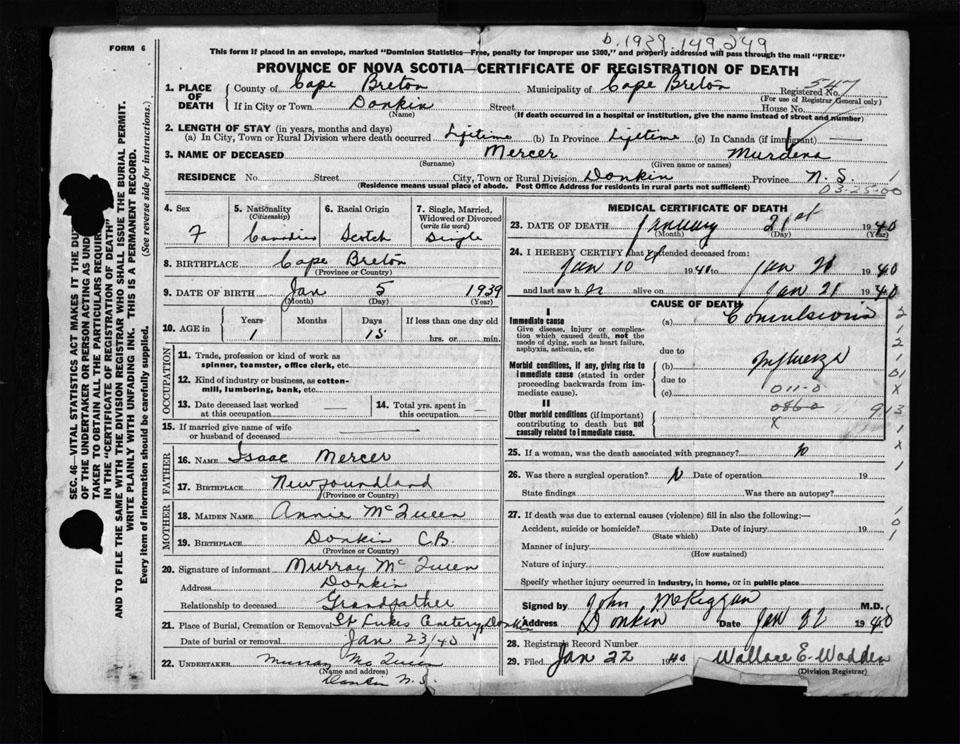 FORM 6
b. 1939. 149 249
This form if placed in an envelope, marked "Dominion Statistics—Free, penalty for improper use $300," and properly addressed will pass through the mail "FREE"
PROVINCE OF NOVA SCOTIA—CERTIFICATE OF REGISTRATION OF DEATH
1. PLACE OF DEATH County of Cape Breton Municipality of Cape Breton Registered No. 547
(For use of Registrar General only)
If in City or Town Donkin Street House No.
(Name) (If death occurred in a hospital or institution, give the name instead of street and number)
2. LENGTH OF STAY (in years, months and days)
(a) In City, Town or Rural Division where death occurred Lifetime (b) In Province Lifetime (c) In Canada (if immigrant) —
3. NAME OF DECEASED Mercer Murdena
(Surname) (Given name or names)
RESIDENCE No. Street City, Town or Rural Division Donkin Province N. S.
(Residence means usual place of abode. Post Office Address for residents in rural parts not sufficient) 03-25-00
4. Sex 5. Nationality (Citizenship) 6. Racial Origin 7. Single, Married, Widowed or Divorced (write the word)
F Canadian Scotch Single
8. BIRTHPLACE Cape Breton
(Province or Country)
9. DATE OF BIRTH Jan 5 1939
(Month) (Day) (Year)
10. AGE in Years Months Days If less than one day old
1 15 hrs. or min.
OCCUPATION
11. Trade, profession or kind of work as spinner, teamster, office clerk, etc.
12. Kind of industry or business, as cotton-mill, lumbering, bank, etc.
13. Date deceased last worked at this occupation 14. Total yrs. spent in this occupation
15. If married give name of wife or husband of deceased
FATHER
16. NAME Isaac Mercer
17. BIRTHPLACE Newfoundland
(Province or Country)
MOTHER
18. MAIDEN NAME Annie McQueen
19. BIRTHPLACE Donkin C.B.
(Province or Country)
20. Signature of informant Murray McQueen
Address Donkin
Relationship to deceased Grandfather
21. Place of Burial, Cremation or Removal St Lukes Cemetery, Donkin
Date of burial or removal Jan 23/40
22. UNDERTAKER Murray McQueen
(Name and address)
Donkin N.S.
MEDICAL CERTIFICATE OF DEATH
23. DATE OF DEATH January 21st 1940
(Month) (Day) (Year)
24. I HEREBY CERTIFY that I attended deceased from:
Jan 10 1940 to Jan 21 1940
and last saw h er alive on Jan 21 1940
CAUSE OF DEATH
I
Immediate cause (a) Convulsions
Give disease, injury or complication which caused death, not the mode of dying, such as heart failure, asphyxia, asthenia, etc
due to
Morbid conditions, if any, giving rise to immediate cause (stated in order proceeding backwards from immediate cause). (b) Influenza
due to
(c) 011-0
II
Other morbid conditions (if important) contributing to death but not causally related to immediate cause.
0860
X
25. If a woman, was the death associated with pregnancy? no
26. Was there a surgical operation? N Date of operation 19
State findings Was there an autopsy?
27. If death was due to external causes (violence) fill in also the following:—
Accident, suicide or homicide? Date of injury 19
(State which)
Manner of injury
(How sustained)
Nature of injury
Specify whether injury occurred in industry, in home, or in public place
Signed by John McKiggan M.D.
Address Donkin Date Jan 22 1940
28. Registrar's Record Number
29. Filed Jan 22 1940 Wallace E. Wadden
(Division Registrar)
(See reverse side for instructions.)
WRITE PLAINLY WITH UNFADING INK. THIS IS A PERMANENT RECORD.
Every item of information should be carefully supplied.
SEC. 46—VITAL STATISTICS ACT MAKES IT THE DU
OF THE UNDERTAKER OR PERSON ACTING AS UND
TAKER TO OBTAIN ALL THE PARTICULARS REQUIR
IN THE "CERTIFICATE OF REGISTRATION OF DEATH"
AND TO FILE THE SAME WITH THE DIVISION REGISTRAR WHO SHALL ISSUE THE BURIAL PERMIT.